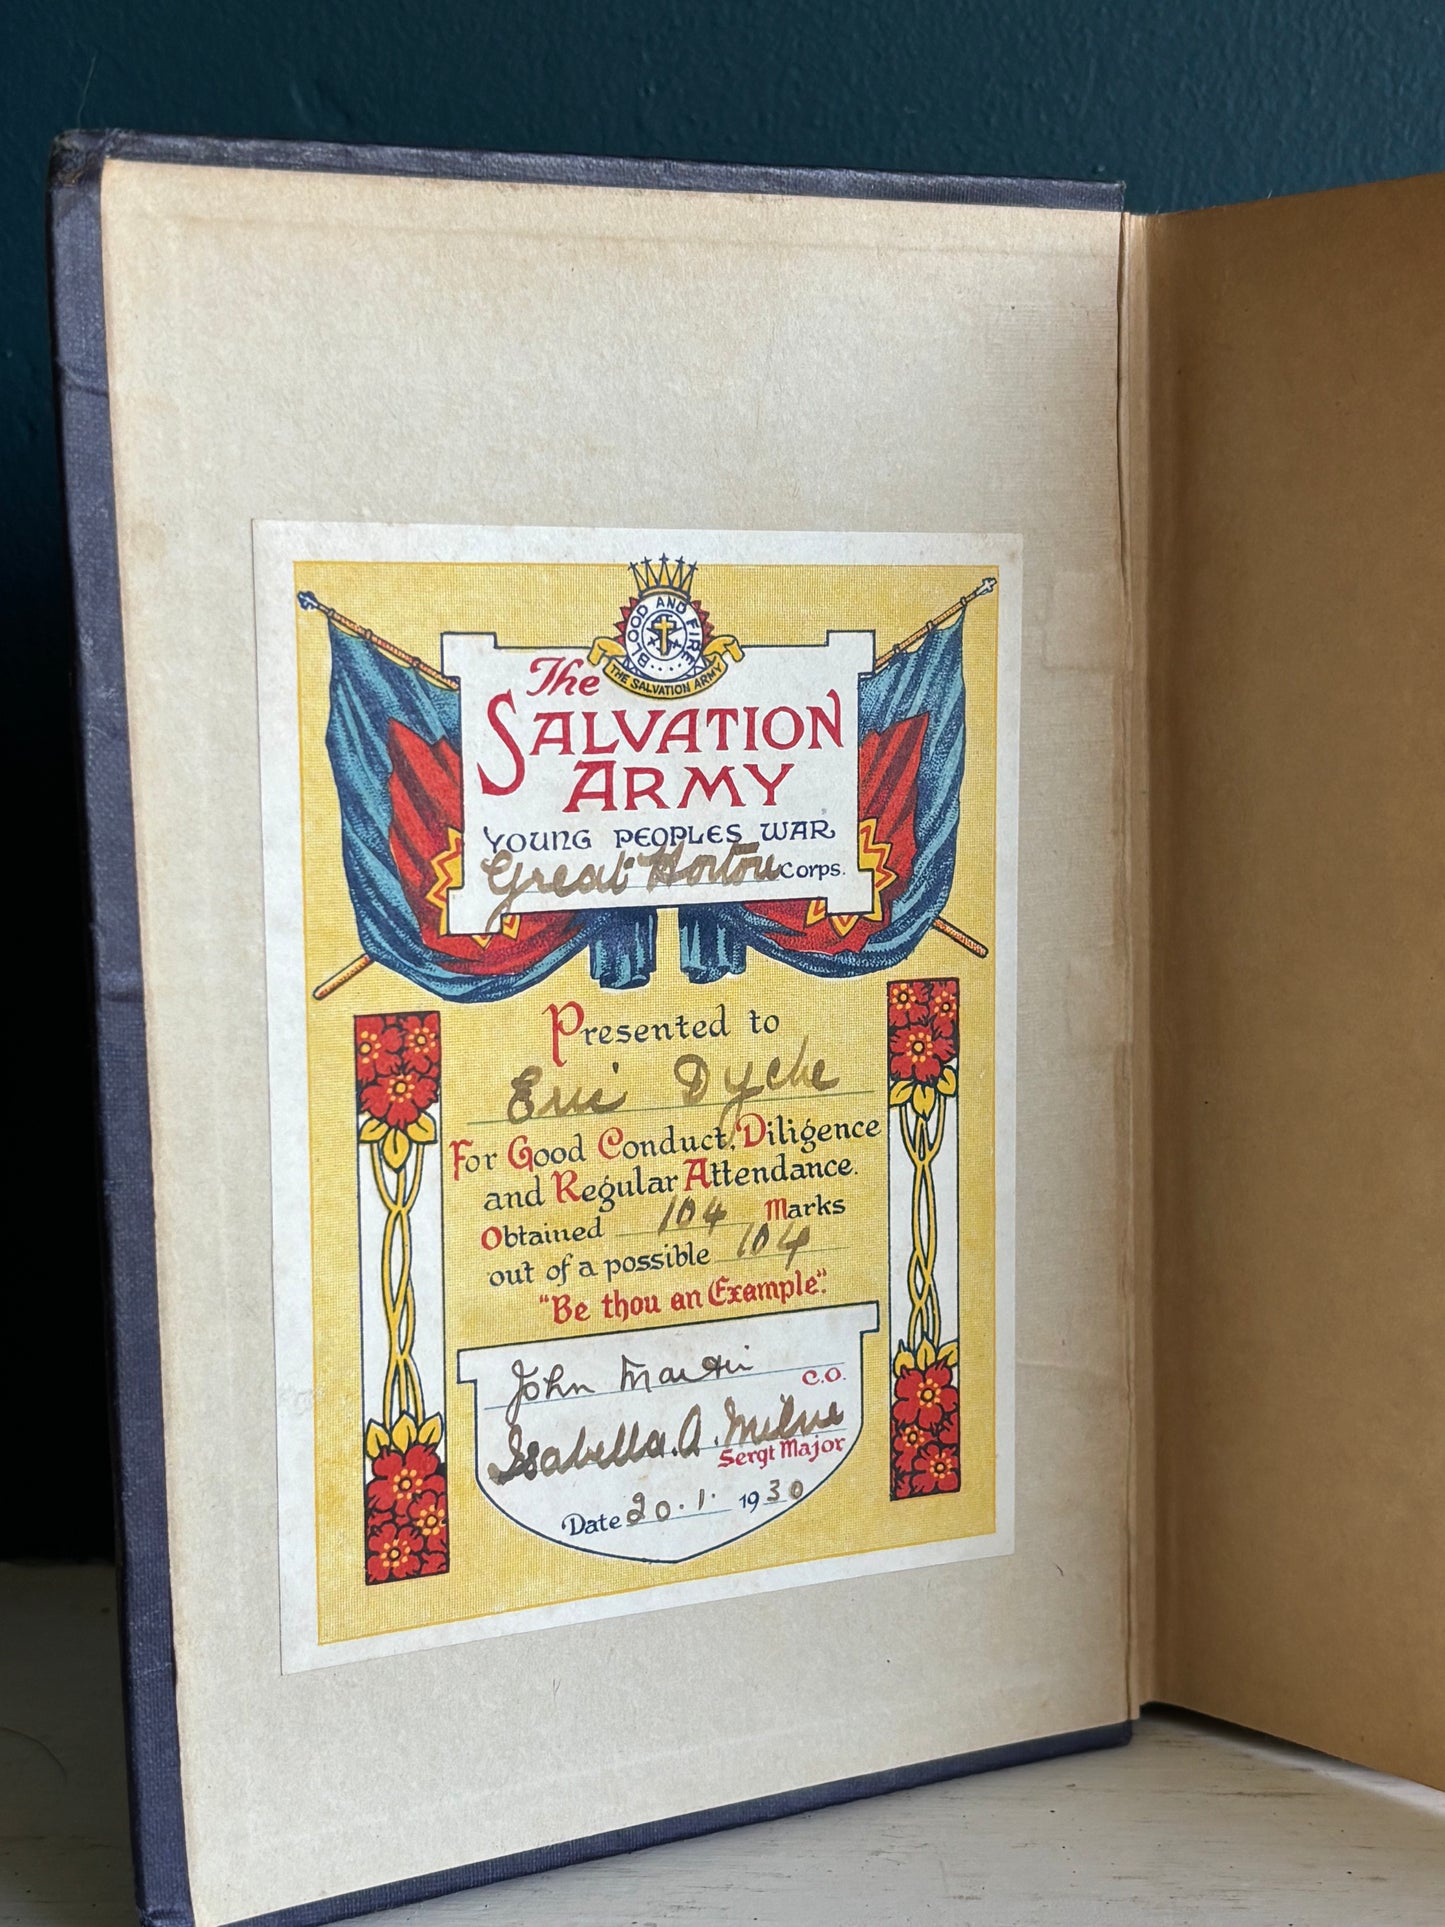 BLOOD AND FIRE
THE SALVATION ARMY
The
SALVATION
ARMY
YOUNG PEOPLES WAR
Great Horton Corps.
Presented to
Eric Dyche
For Good Conduct, Diligence
and Regular Attendance.
Obtained 104 Marks
out of a possible 104
"Be thou an Example".
John Martin
C.O.
Isabella. A. Milne
Sergt Major
Date 20.1. 1930